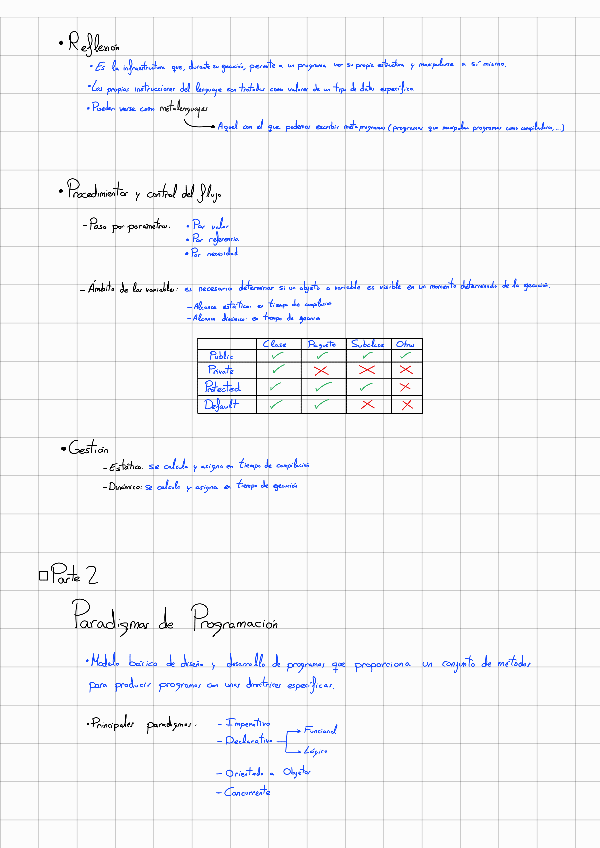 • Reflexión
• Es la infraestructura que, durante su ejecución, permite a un programa ver su propia estructura y manipularse a sí mismo.
• Las propias instrucciones del lenguaje son tratadas como valores de un tipo de datos específico.
• Pueden verse como metalenguajes
Aquel con el que podemos escribir metaprogramas (programas que manipulan programas como compiladores,...)
• Procedimientos y control del flujo
- Paso por parámetros: • Por valor
• Por referencia
• Por necesidad
- Ámbito de las variables: es necesario determinar si un objeto o variable es visible en un momento determinado de la ejecución.
- Alcance estático: en tiempo de compilación
- Alcance dinámico: en tiempo de ejecución
Clase Paquete Subclase Otros
Public ✓ ✓ ✓ ✓
Private ✓ ✗ ✗ ✗
Protected ✓ ✓ ✓ ✗
Default ✓ ✓ ✗ ✗
• Gestión
- Estática: se calcula y asigna en tiempo de compilación
- Dinámica: se calcula y asigna en tiempo de ejecución
□ Parte 2
Paradigmas de Programación
• Modelo básico de diseño y desarrollo de programas que proporciona un conjunto de métodos
para producir programas con unas directrices específicas.
• Principales paradigmas: - Imperativo
- Declarativo → Funcional
→ Lógico
- Orientado a Objetos
- Concurrente